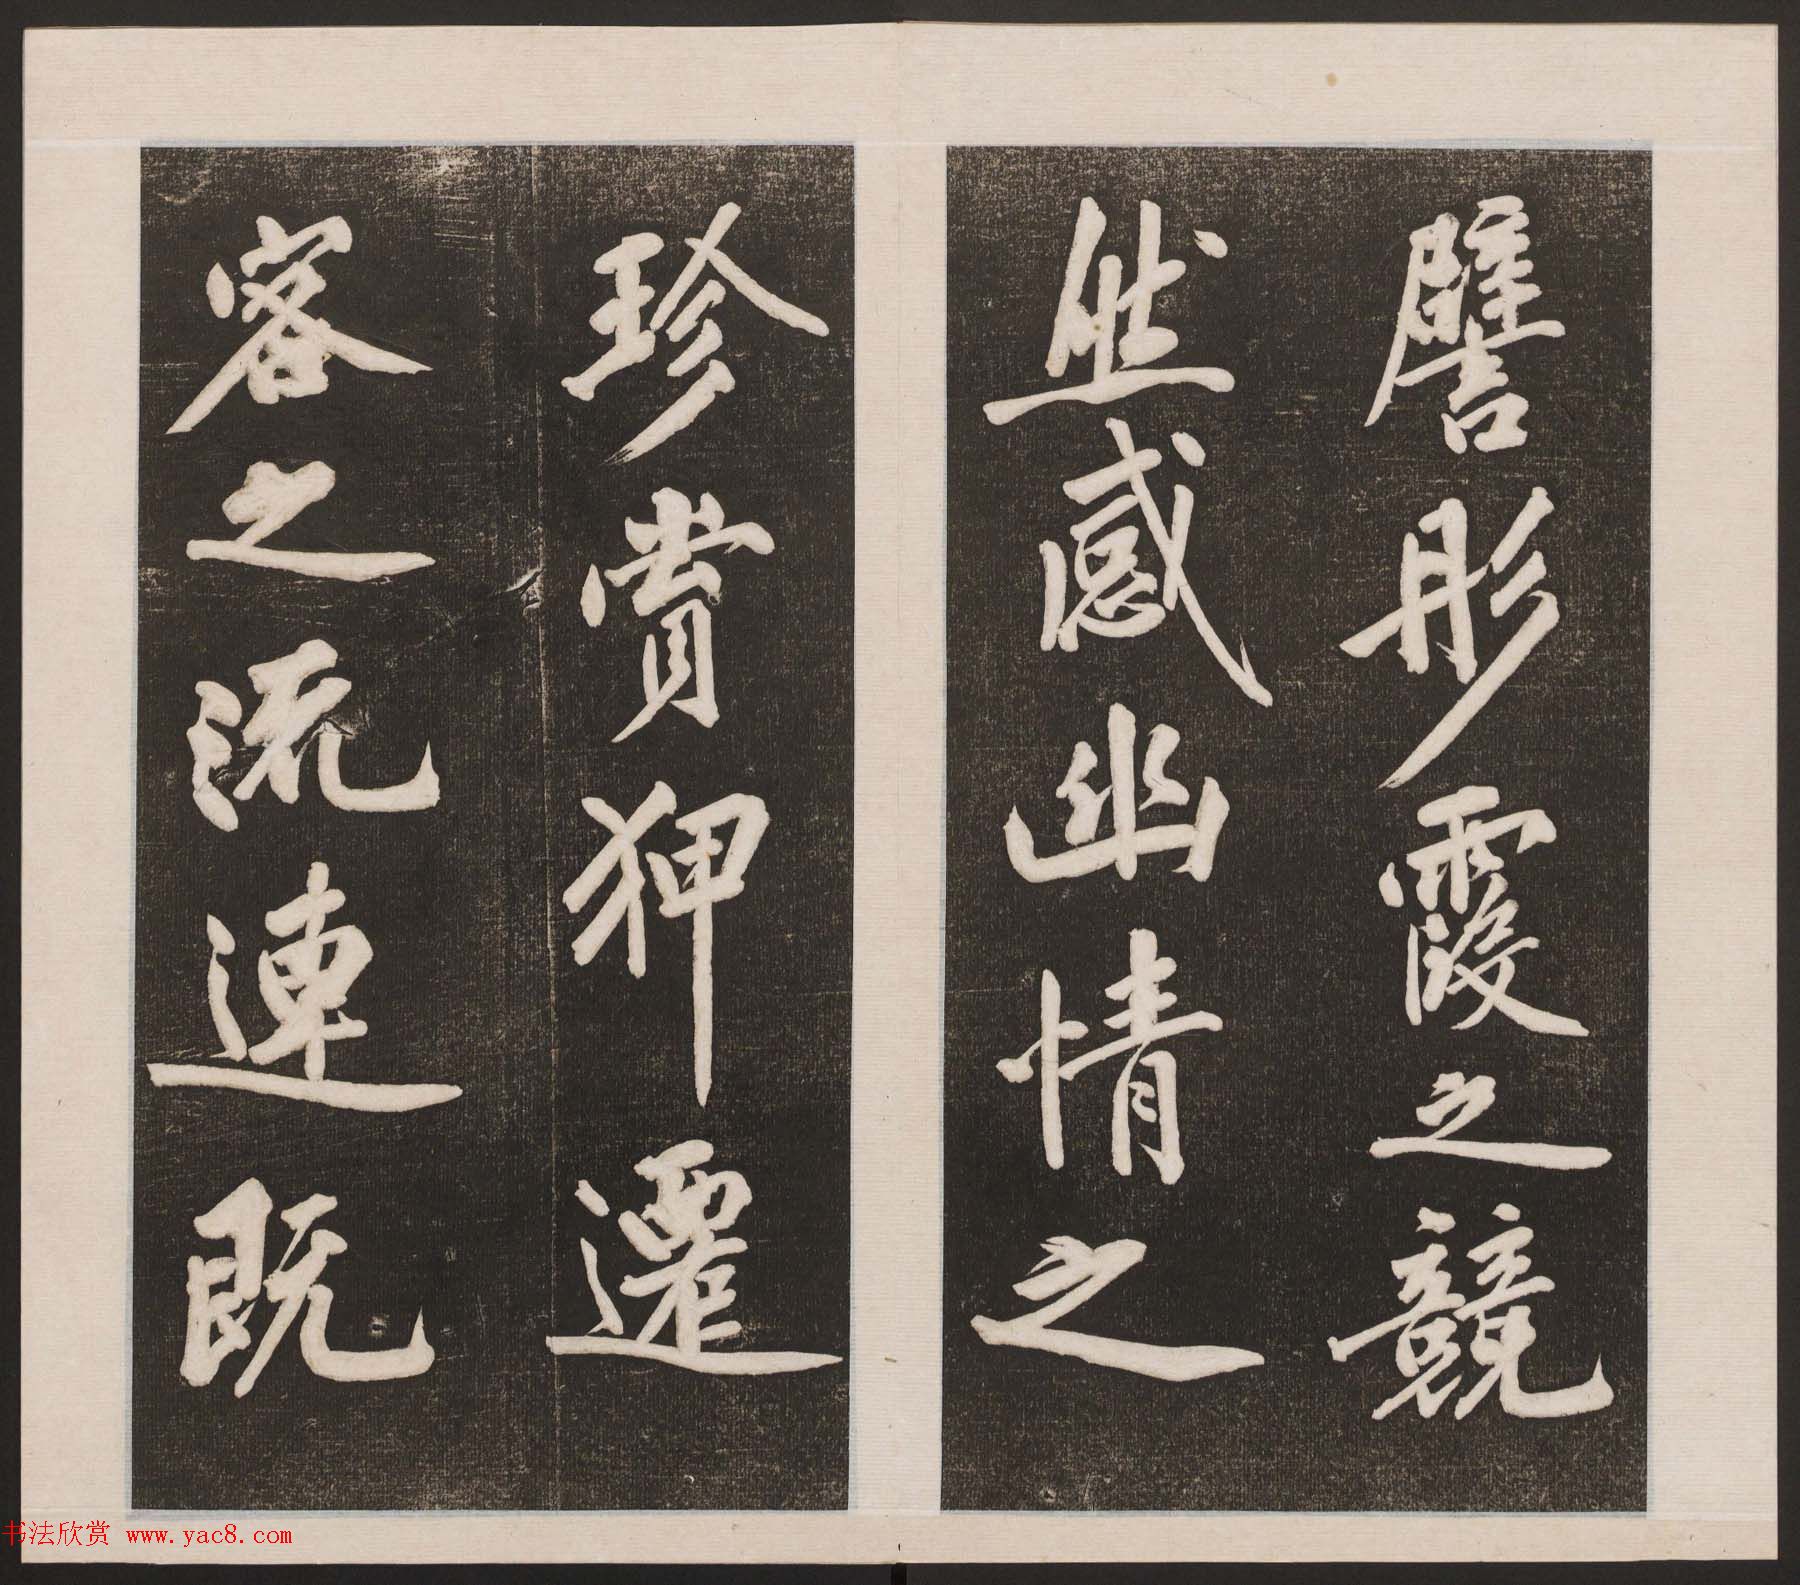 譬彤霞之競
然感幽情之
珍賞狎遷
客之流連既
书法欣赏 www.yac8.com